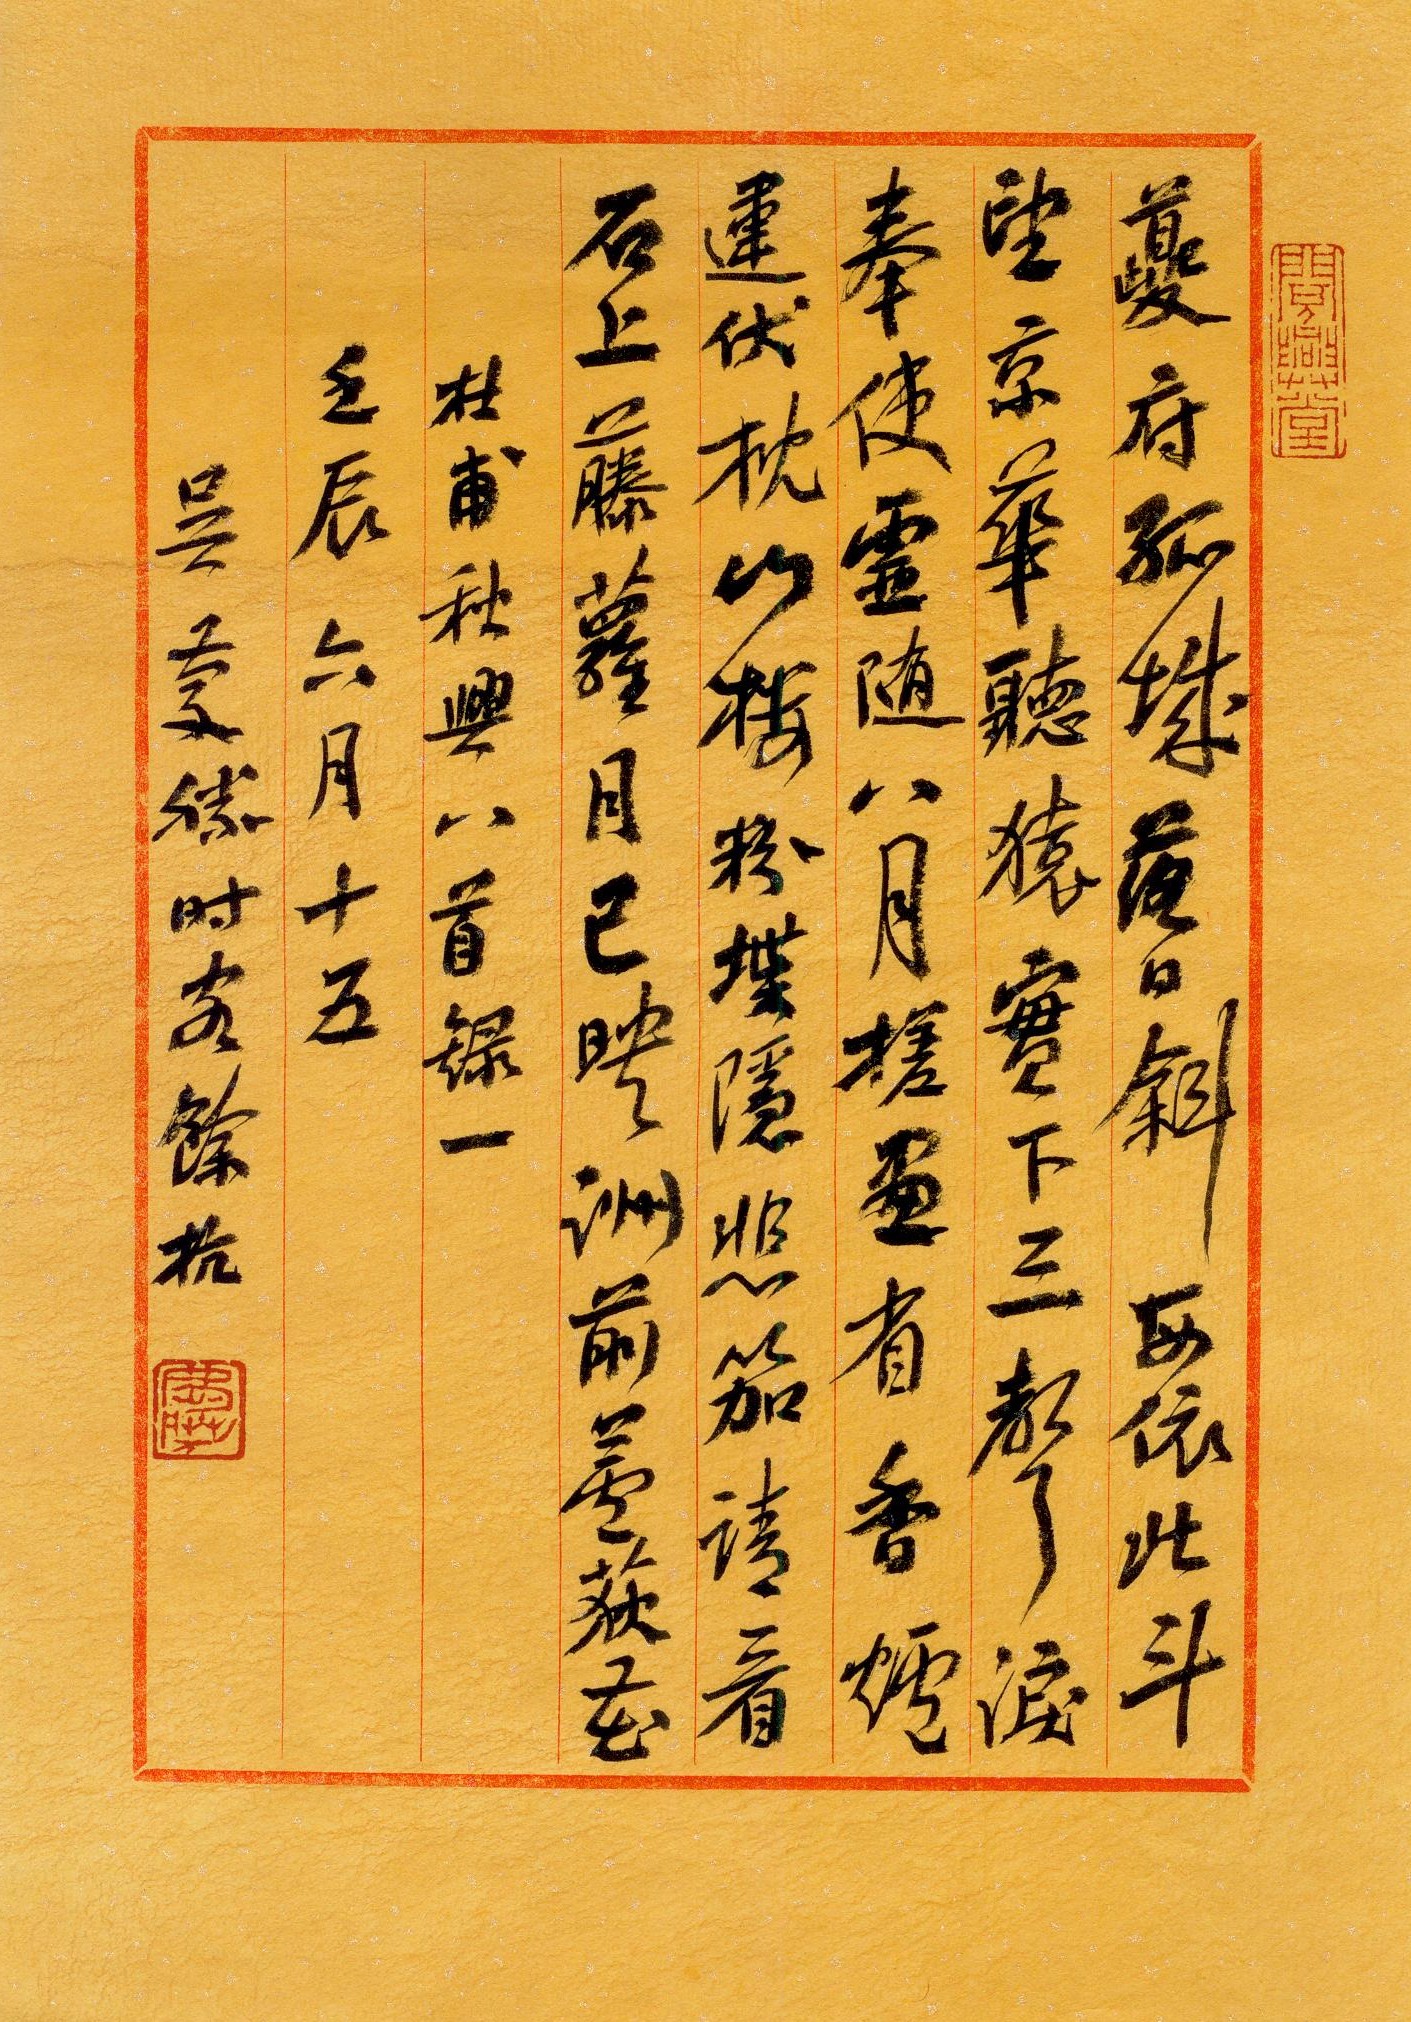 夔府孤城落日斜每依北斗
望京華聽猿實下三聲淚
奉使虛随八月槎畫省香爐
違伏枕山樓粉堞隱悲笳請看
石上藤蘿月已映洲前蘆荻花
杜甫秋興八首録一
壬辰六月十五
吴慶勝时客餘杭